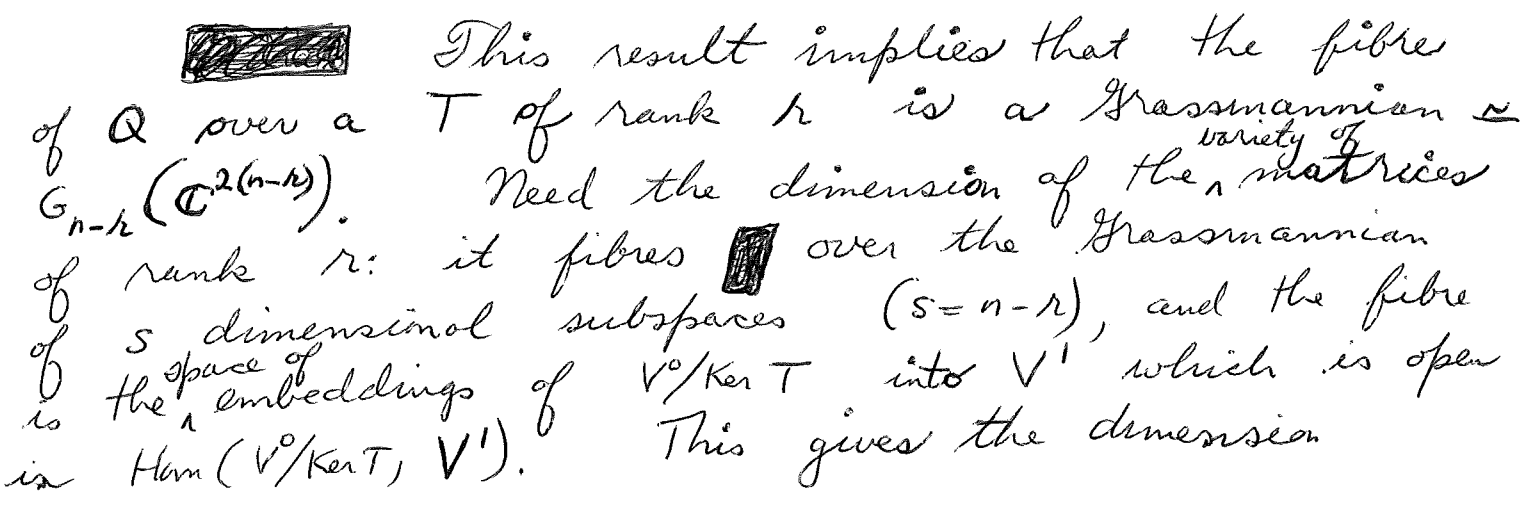 This result implies that the fibre
of Q over a T of rank r is a Grassmannian ≃
G_{n-r}(ℂ^{2(n-r)}). Need the dimension of the variety of matrices
of rank r: it fibres over the Grassmannian
of s dimensional subspaces (s = n-r), and the fibre
is the space of embeddings of V⁰/Ker T into V¹ which is open
in Hom(V⁰/Ker T, V¹). This gives the dimension